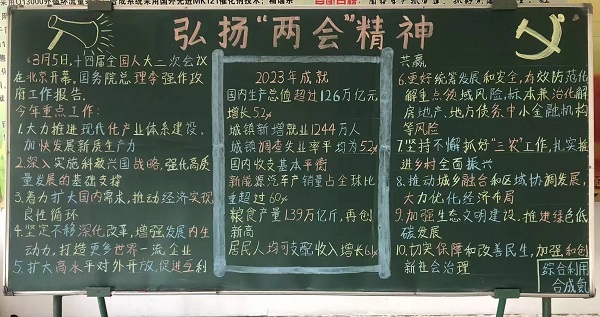 弘扬“两会”精神
3月5日,十四届全国人大二次会议
在北京开幕,国务院总理李强作政
府工作报告。
今年重点工作:
1.大力推进现代化产业体系建设,
加快发展新质生产力
2.深入实施科教兴国战略,强化高质
量发展的基础支撑
3.着力扩大国内需求,推动经济实现
良性循环
4.坚定不移深化改革,增强发展内生
动力,打造更多世界一流企业
5.扩大高水平对外开放,促进互利
2023年成就
国内生产总值超过126万亿元
增长5.2%
城镇新增就业1244万人
城镇调查失业率平均为5.2%
国内收支基本平衡
新能源汽车产销量占全球比
重超过60%
粮食产量1.39万亿斤,再创
新高
居民人均可支配收入增长6.1%
共赢
6.更好统筹发展和安全,有效防范化
解重点领域风险,标本兼治化解
房地产、地方债务、中小金融机构
等风险
7.坚持不懈抓好“三农”工作,扎实推
进乡村全面振兴
8.推动城乡融合和区域协调发展,
大力优化经济布局
9.加强生态文明建设,推进绿色低
碳发展
10.切实保障和改善民生,加强和创
新社会治理
综合利用
合成氨